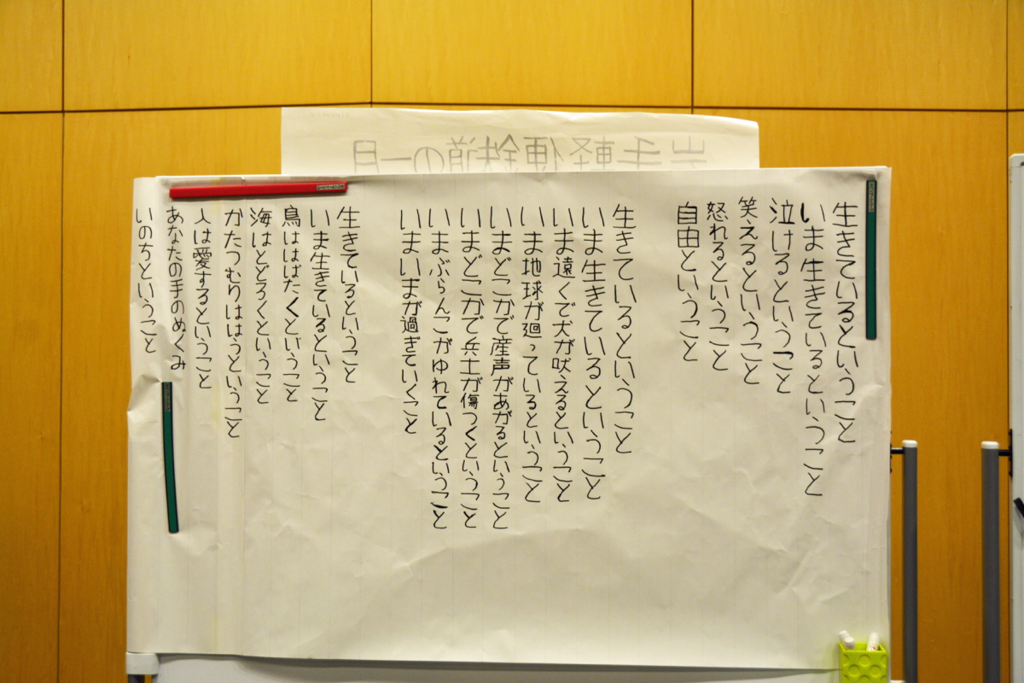 生きているということ
いま生きているということ
泣けるということ
笑えるということ
怒れるということ
自由ということ
生きているということ
いま生きているということ
いま遠くで犬が吠えるということ
いま地球が廻っているということ
いまどこかで産声があがるということ
いまどこかで兵士が傷つくということ
いまぶらんこがゆれているということ
いまいまが過ぎていくこと
生きているということ
いま生きているということ
鳥ははばたくということ
海はとどろくということ
かたつむりははうということ
人は愛するということ
あなたの手のぬくみ
いのちということ
岩手軽便鉄道の一月